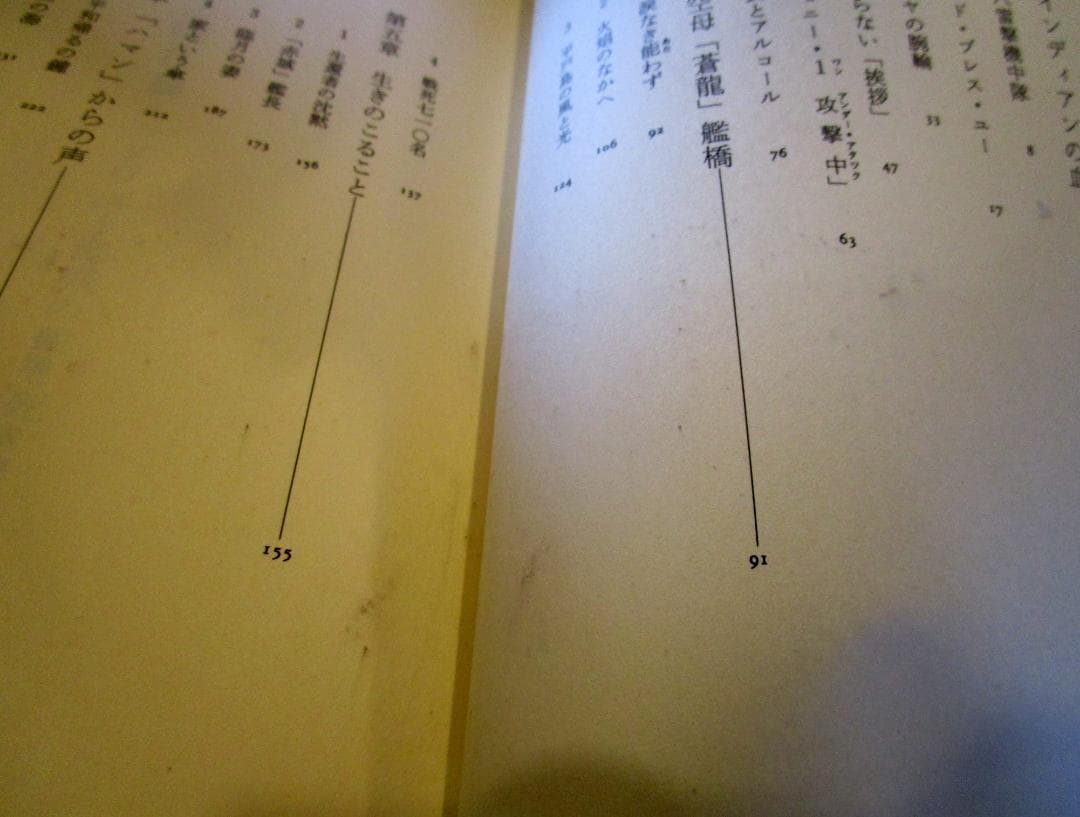 インディアンの
雷撃機中隊 8
ド・ブレス・ユー 17
ヤの腕輪 33
らない「挨拶」 47
ニー・1 攻撃中」 63
ワン アンダー・アタック
とアルコール 76
空母「蒼龍」艦橋 91
涙なき能わず 92
あた
2 火焔のなかへ 106
3 平戸島の風と光 124
4 戦死七一〇名 137
第五章 生きのこること 155
1 生還者の沈黙 156
2 「赤城」艦長 173
3 臨月の妻 187
4 妻という傘 212
「ハマン」からの声
222
231